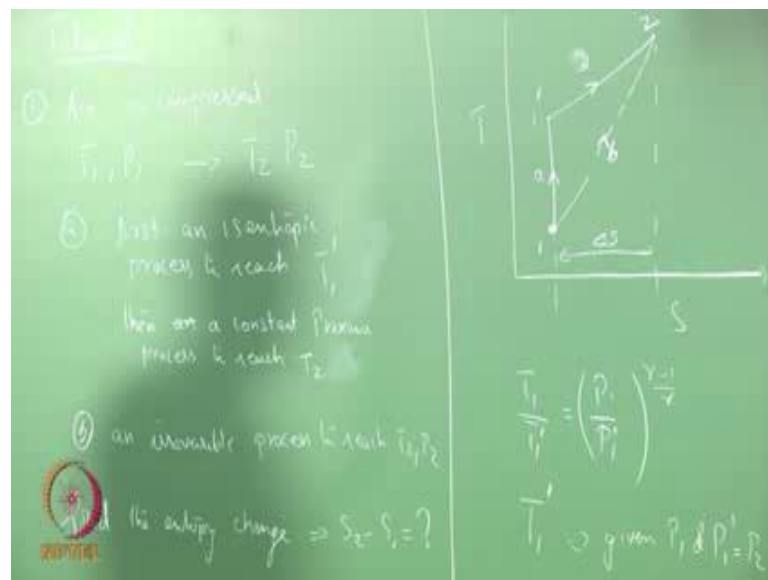 Tutorial
① Air is compressed
T₁, P₁ → T₂ P₂
ⓐ first an isentropic
process to reach T₁'
then a constant Pressure
process to reach T₂
ⓑ an irreversible process to reach T₂, P₂
Find the entropy change ⇒ S₂ - S₁ = ?
NPTEL
T
2
a
1'
a
b
1
ΔS
S
T₁/T₁' = (P₁/P₁')^(γ-1)/γ
T₁' ⇒ given P₁ & P₁' = P₂